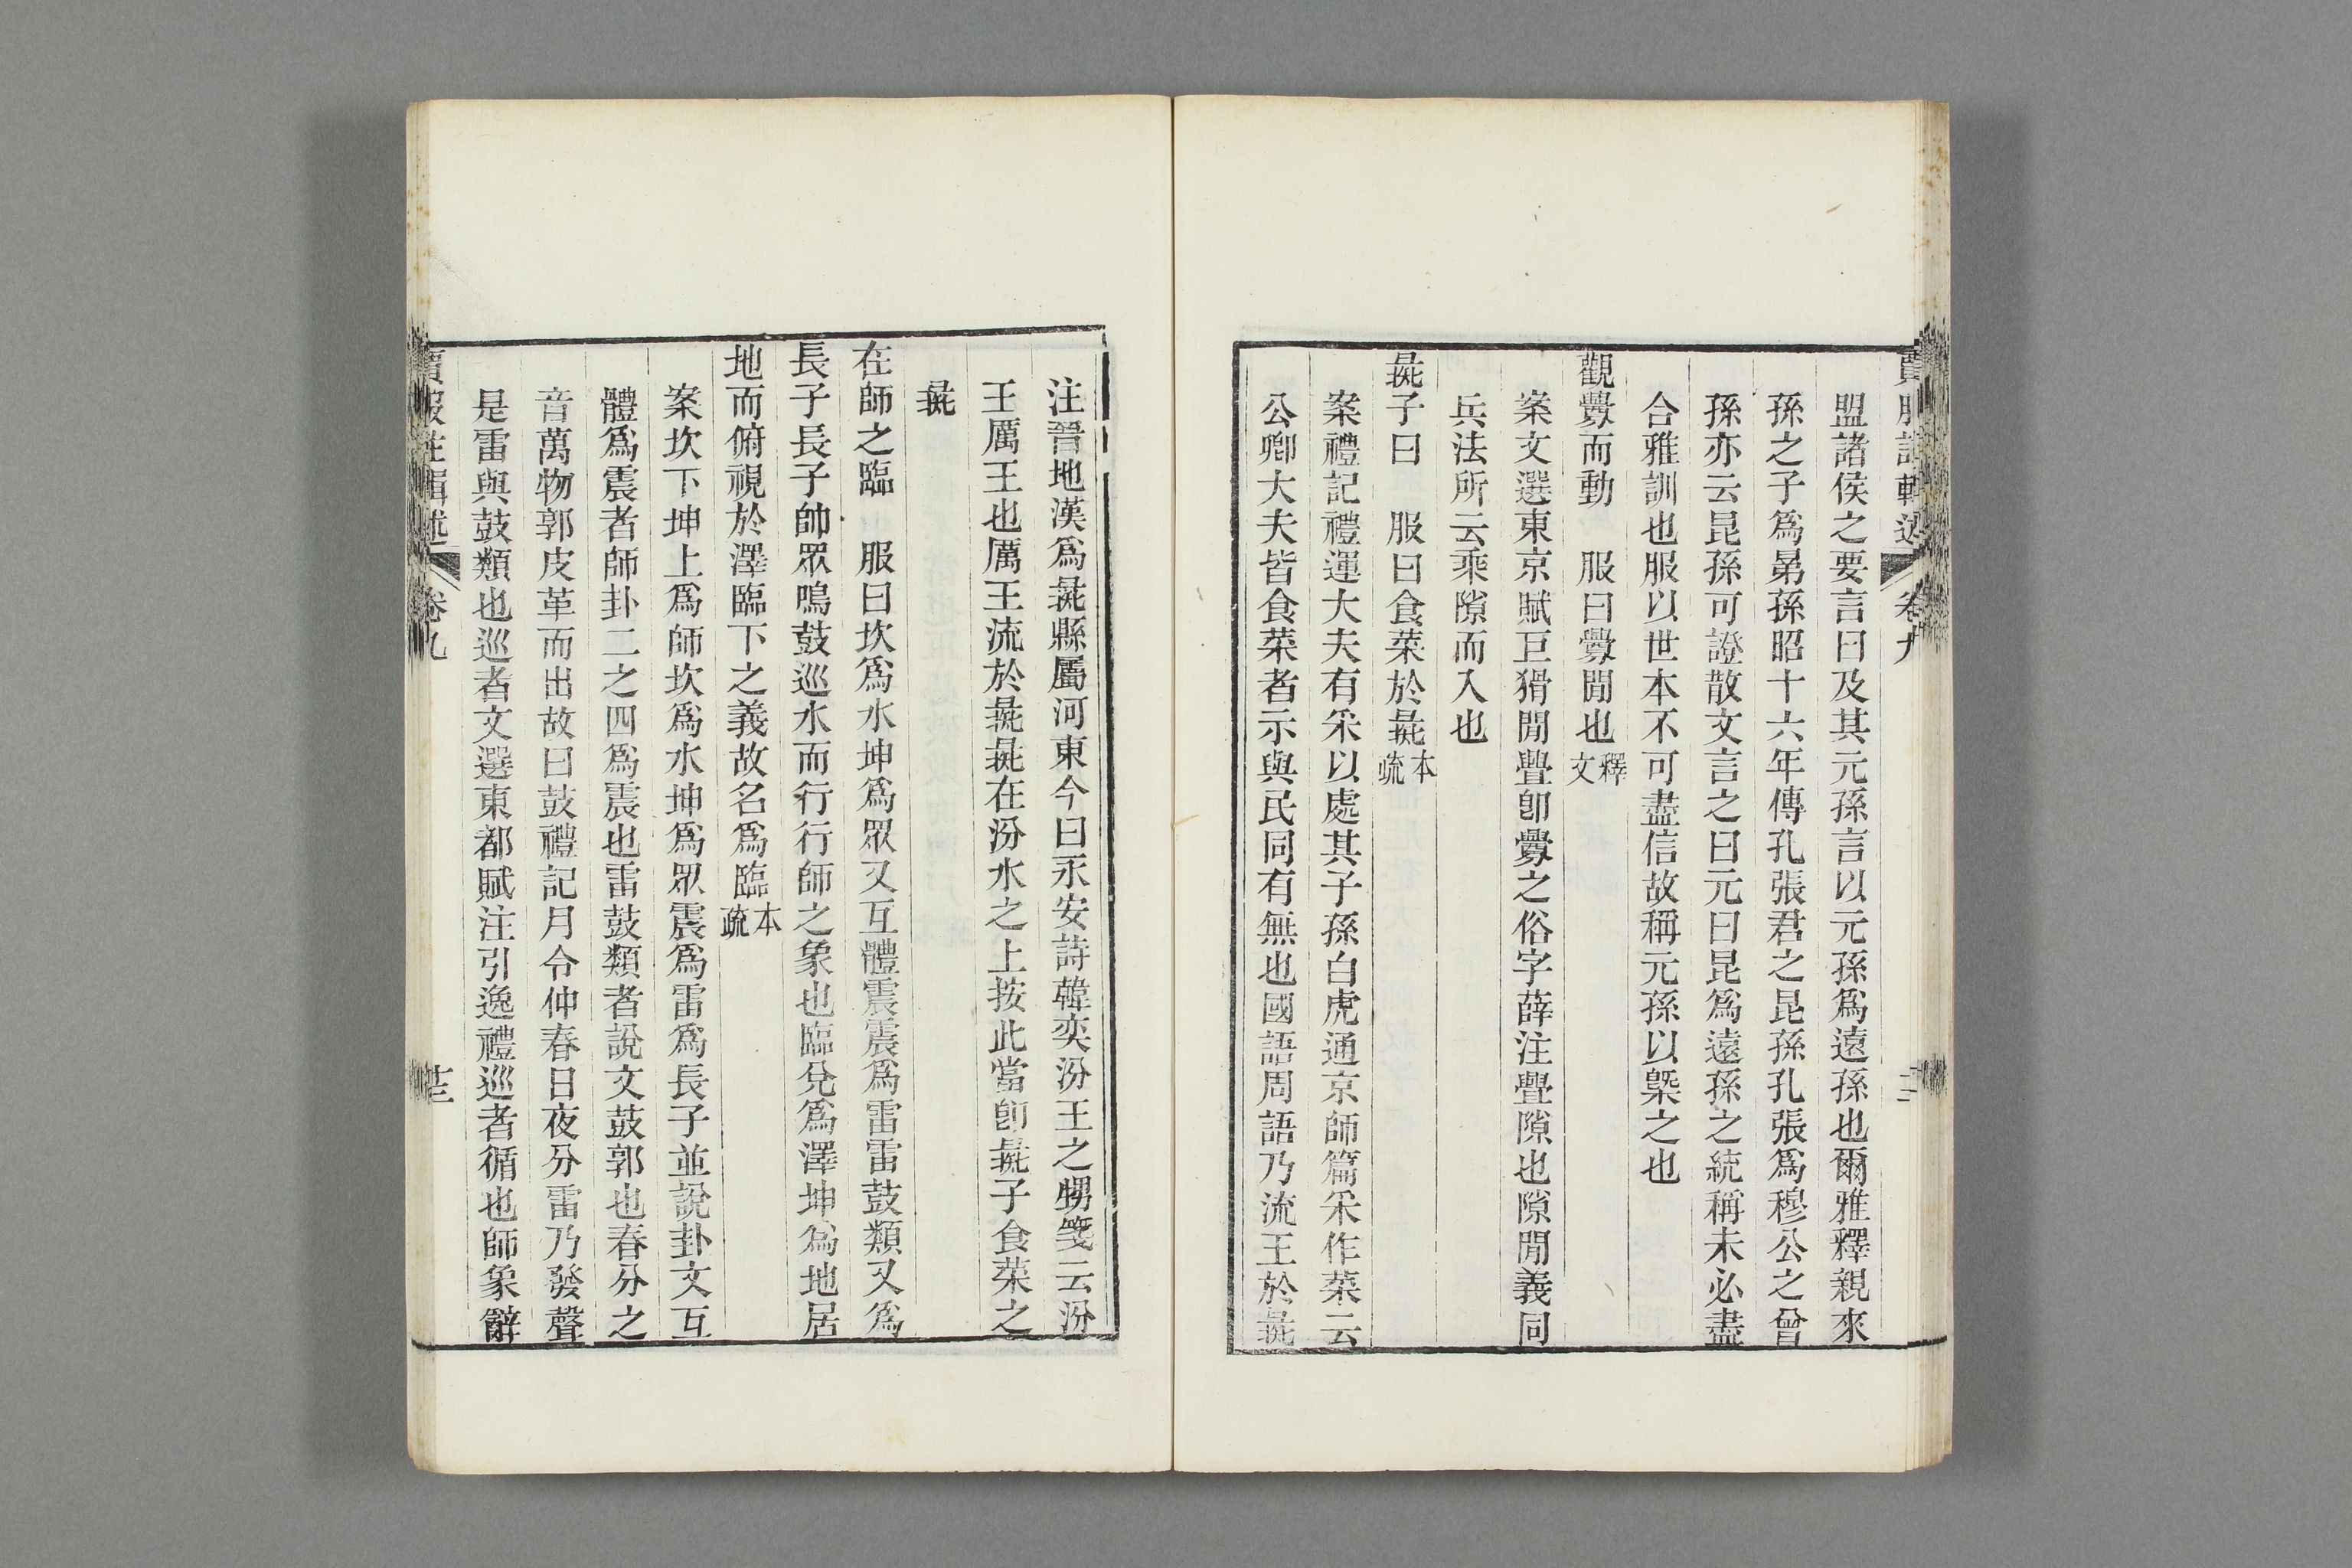 賈服註輯述 卷九
盟諸侯之要言曰及其元孫言以元孫爲遠孫也爾雅釋親來
孫之子爲晜孫昭十六年傳孔張君之昆孫孔張爲穆公之曾
孫亦云昆孫可證散文言之曰元曰昆爲遠孫之統稱未必盡
合雅訓也服以世本不可盡信故稱元孫以槩之也
觀釁而動 服曰釁閒也釋文
案文選東京賦巨猾閒舋卽釁之俗字薛注舋隙也隙閒義同
兵法所云乘隙而入也
彘子曰 服曰食菜於彘本疏
案禮記禮運大夫有采以處其子孫白虎通京師篇采作菜云
公卿大夫皆食菜者示與民同有無也國語周語乃流王於彘
注晉地漢爲彘縣屬河東今曰永安詩韓奕汾王之甥箋云汾
王厲王也厲王流於彘彘在汾水之上按此當卽彘子食菜之
彘
在師之臨 服曰坎爲水坤爲眾又互體震震爲雷雷鼓類又爲
長子長子帥眾鳴鼓巡水而行行師之象也臨兌爲澤坤爲地居
地而俯視於澤臨下之義故名爲臨本疏
案坎下坤上爲師坎爲水坤爲眾震爲雷爲長子並說卦文互
體爲震者師卦二之四爲震也雷鼓類者說文鼓郭也春分之
音萬物郭皮革而出故曰鼓禮記月令仲春日夜分雷乃發聲
是雷與鼓類也巡者文選東都賦注引逸禮巡者循也師象辭
賈服註輯述 卷九 廿三